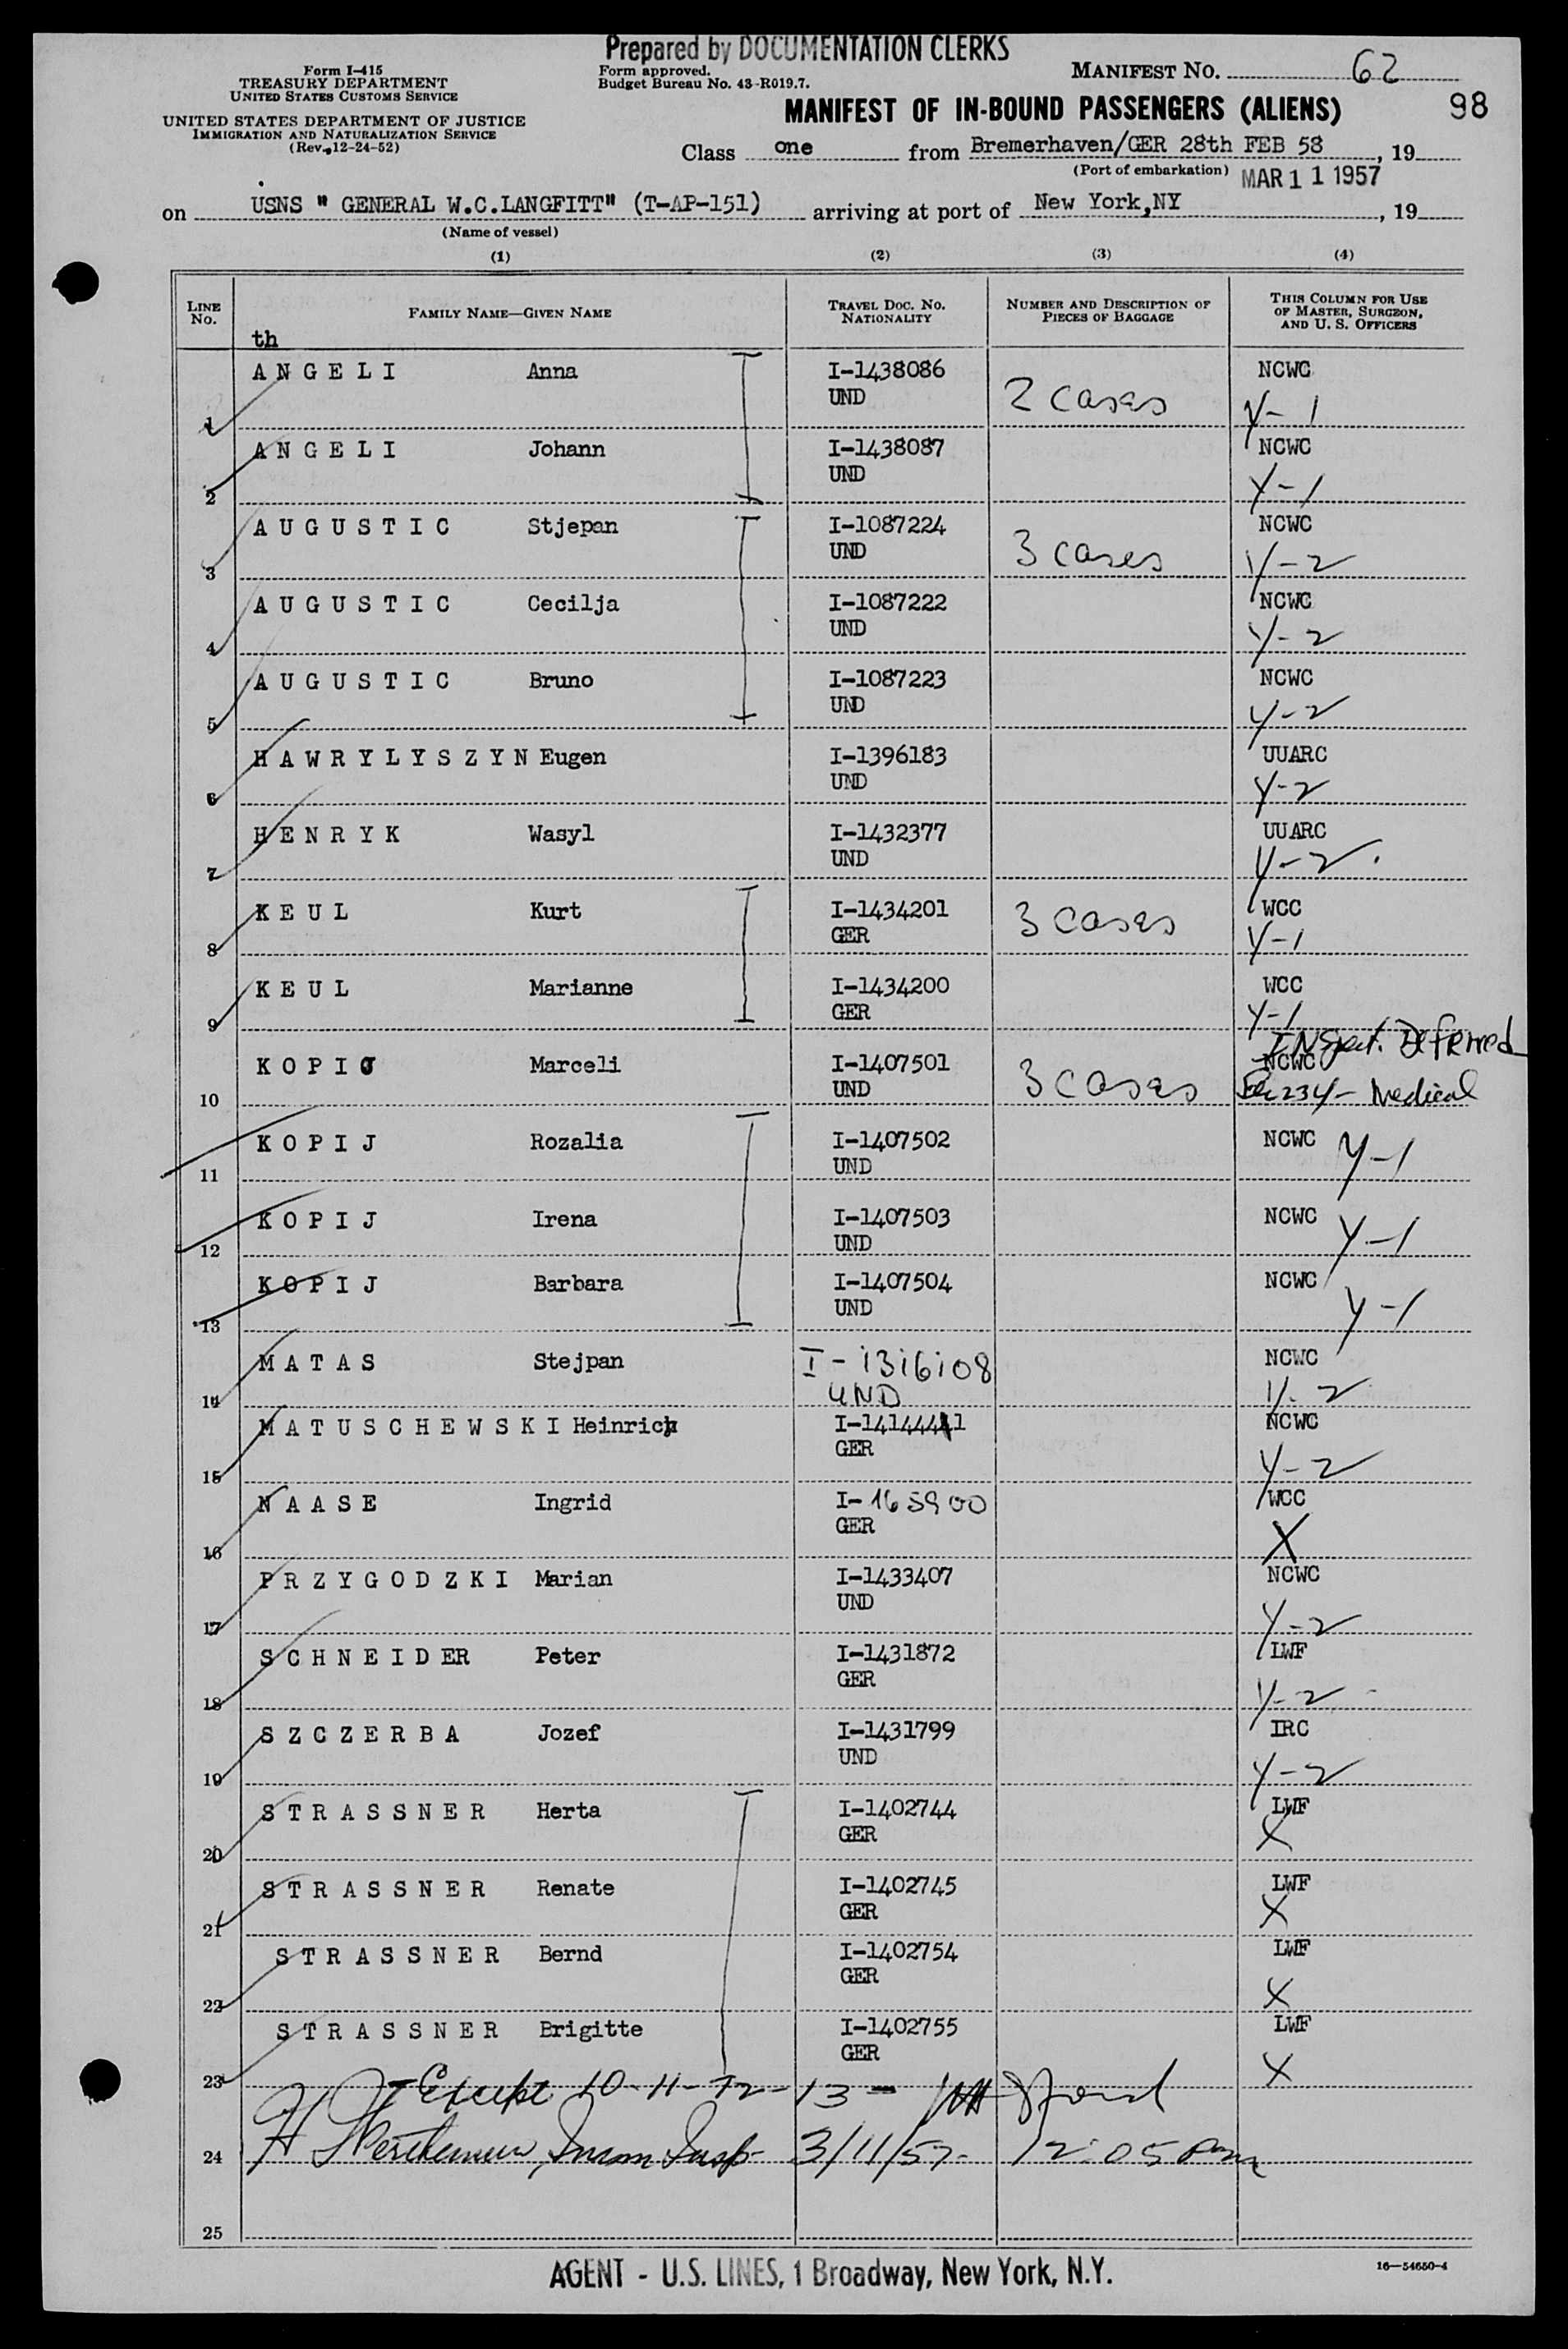 Prepared by DOCUMENTATION CLERKS
Form I-415
TREASURY DEPARTMENT
UNITED STATES CUSTOMS SERVICE
UNITED STATES DEPARTMENT OF JUSTICE
IMMIGRATION AND NATURALIZATION SERVICE
(Rev. 12-24-52)
Form approved.
Budget Bureau No. 43-R019.7.
MANIFEST NO. 62
98
MANIFEST OF IN-BOUND PASSENGERS (ALIENS)
Class one from Bremerhaven/GER 28th FEB 58, 19
(Port of embarkation) MAR 11 1957
on USNS " GENERAL W.C.LANGFITT" (T-AP-151) arriving at port of New York,NY, 19
(Name of vessel)
(1) (2) (3) (4)
LINE NO. FAMILY NAME—GIVEN NAME TRAVEL DOC. NO. NATIONALITY NUMBER AND DESCRIPTION OF PIECES OF BAGGAGE THIS COLUMN FOR USE OF MASTER, SURGEON, AND U. S. OFFICERS
th
1 ANGELI Anna I-1438086 UND 2 cases NCWC Y-1
2 ANGELI Johann I-1438087 UND NCWC Y-1
3 AUGUSTIC Stjepan I-1087224 UND 3 cases NCWC Y-2
4 AUGUSTIC Cecilja I-1087222 UND NCWC Y-2
5 AUGUSTIC Bruno I-1087223 UND NCWC Y-2
6 HAWRYLYSZYN Eugen I-1396183 UND UUARC Y-2
7 HENRYK Wasyl I-1432377 UND UUARC Y-2
8 KEUL Kurt I-1434201 GER 3 cases WCC Y-1
9 KEUL Marianne I-1434200 GER WCC Y-1
10 KOPIJ Marceli I-1407501 UND 3 cases NCWC INSpect. Deferred Sec 234- Medical
11 KOPIJ Rozalia I-1407502 UND NCWC Y-1
12 KOPIJ Irena I-1407503 UND NCWC Y-1
13 KOPIJ Barbara I-1407504 UND NCWC Y-1
14 MATAS Stejpan I-1316108 UND NCWC Y-2
15 MATUSCHEWSKI Heinrich GER NCWC Y-2
16 NAASE Ingrid I-165900 GER WCC X
17 PRZYGODZKI Marian I-1433407 UND NCWC Y-2
18 SCHNEIDER Peter I-1431872 GER LWF Y-2
19 SZCZERBA Jozef I-1431799 UND IRC Y-2
20 STRASSNER Herta I-1402744 GER LWF X
21 STRASSNER Renate I-1402745 GER LWF X
22 STRASSNER Bernd I-1402754 GER LWF X
23 STRASSNER Brigitte I-1402755 GER LWF X
Except 10-11-12-13-
24 3/11/57- 12:05 pm
25
AGENT - U.S. LINES, 1 Broadway, New York, N.Y.
16—54650-4